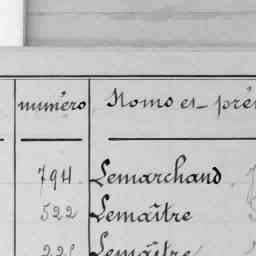 numéro Noms et pré
794 Lemarchand
522 Lemaître
Lemaître